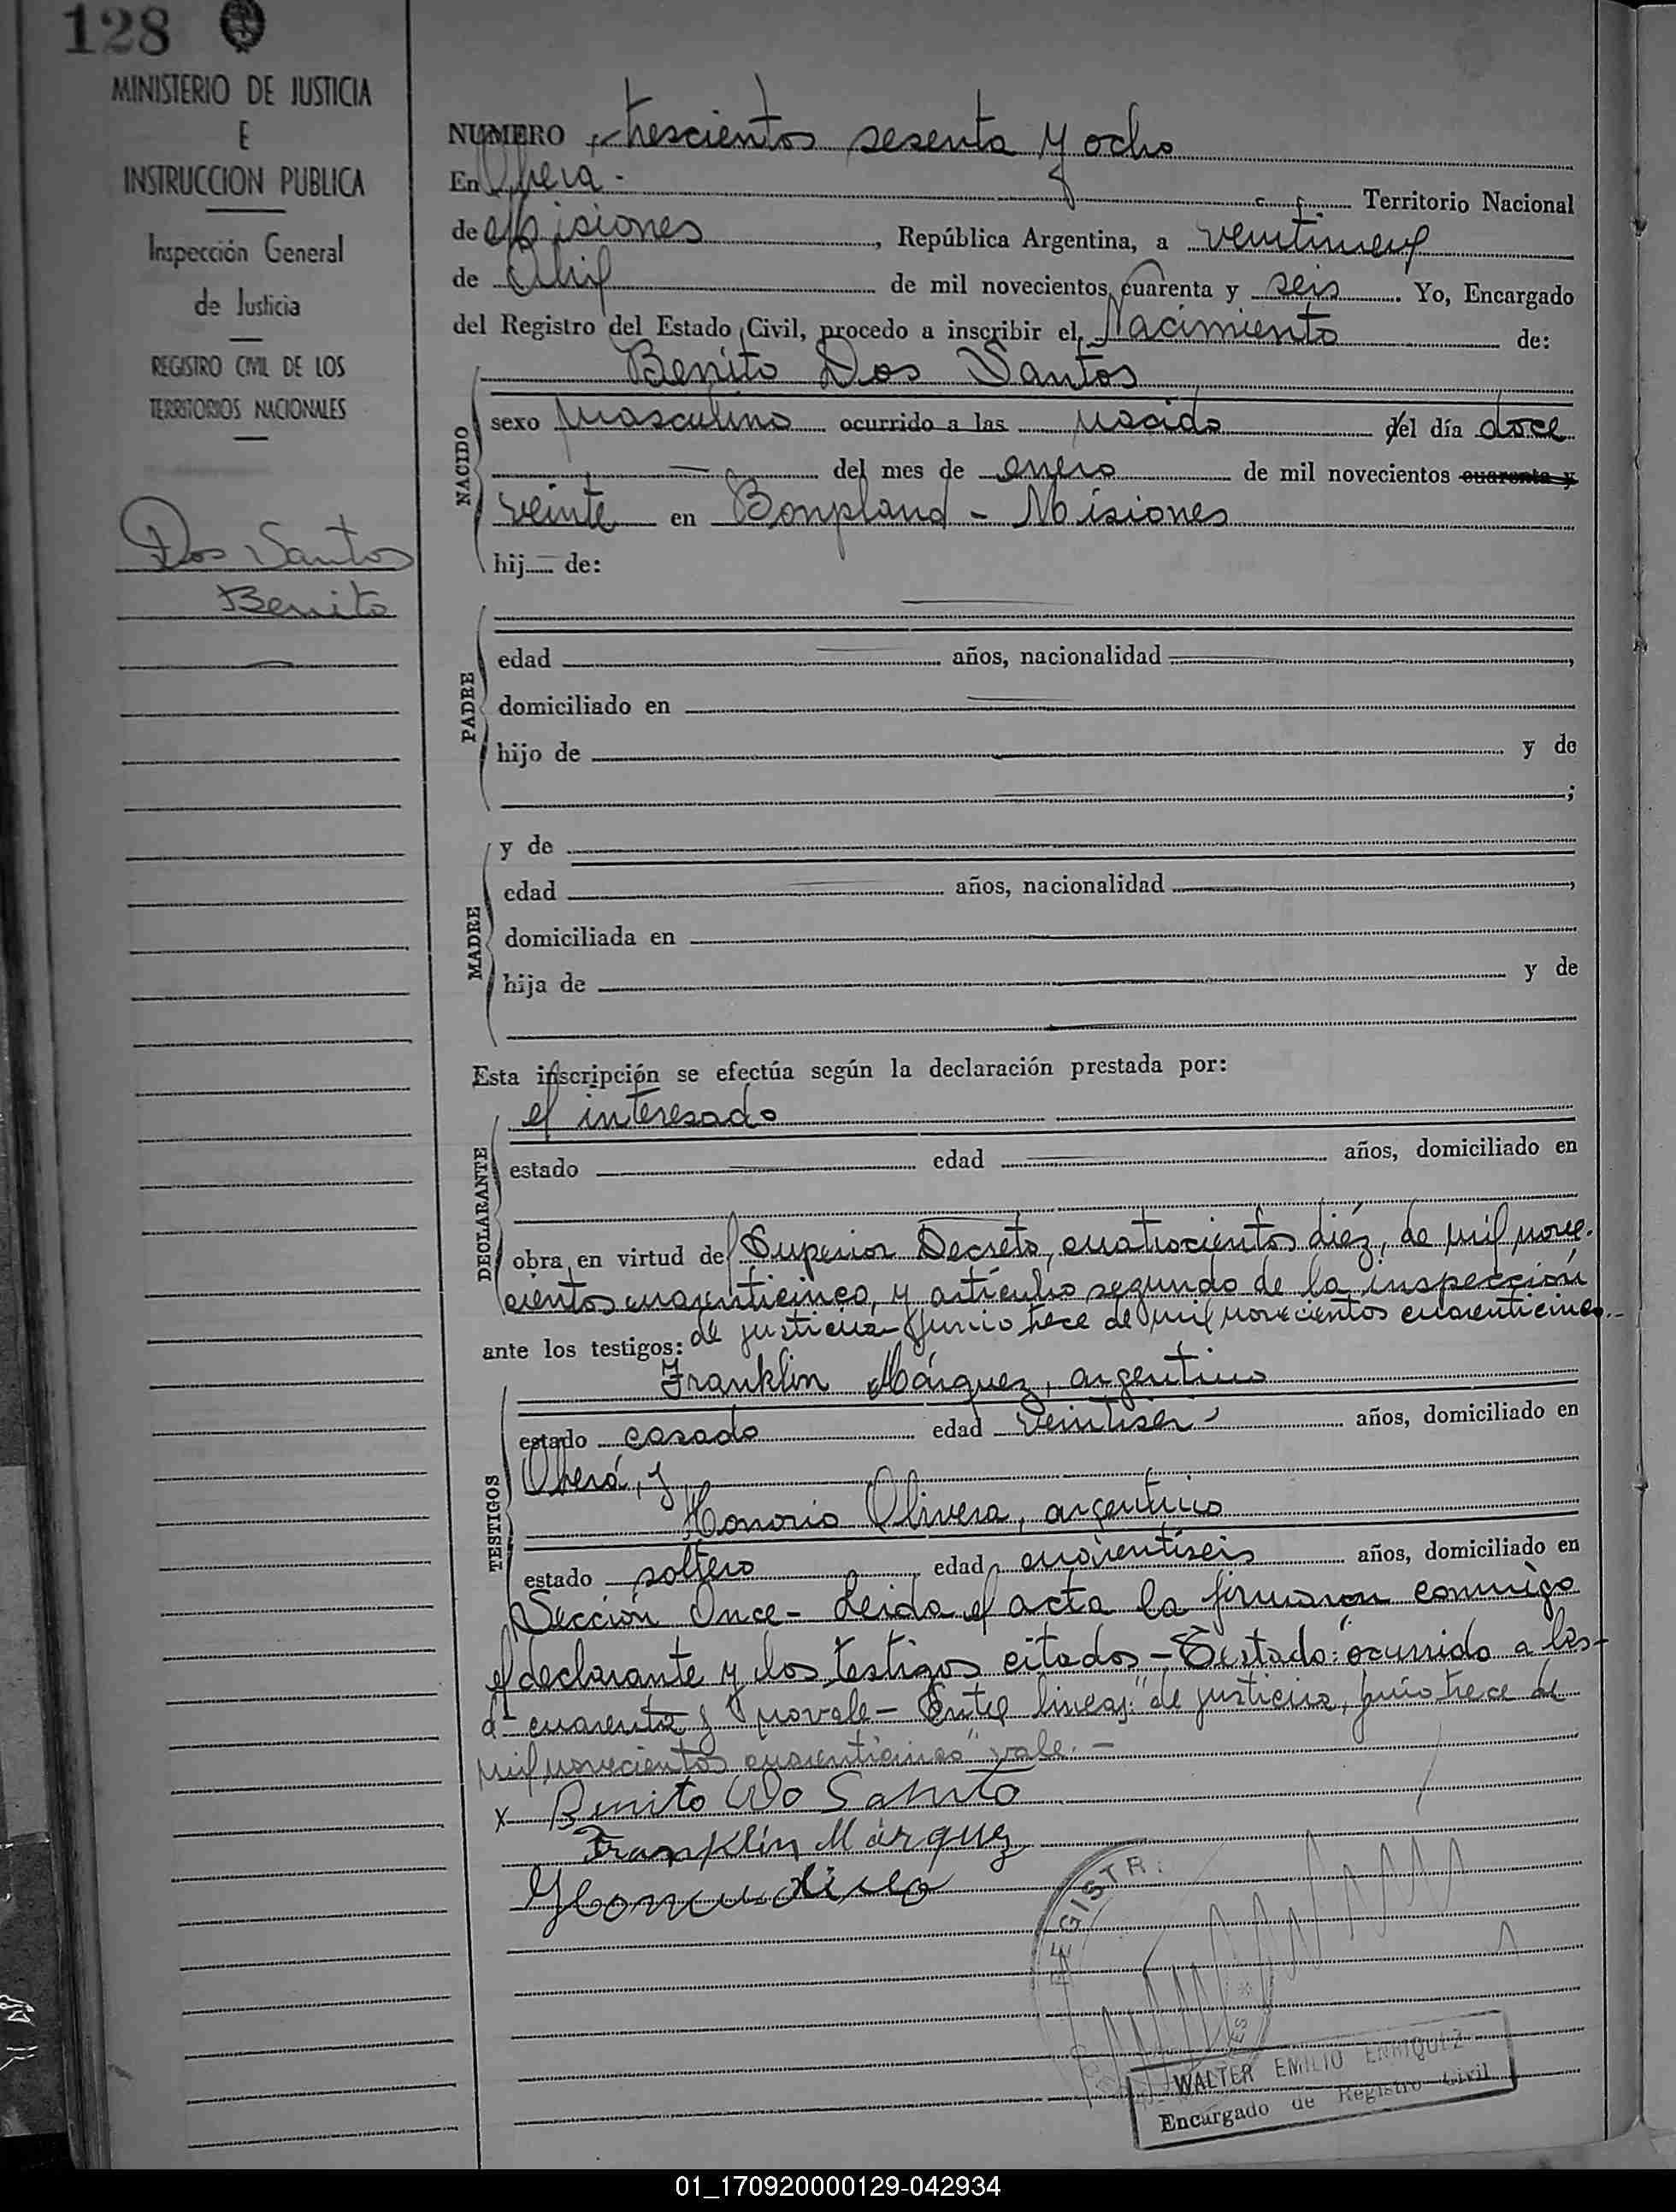 128
MINISTERIO DE JUSTICIA
E
INSTRUCCION PUBLICA
Inspección General
de Justicia
REGISTRO CIVIL DE LOS
TERRITORIOS NACIONALES
Dos Santos
Benito
NUMERO trescientos sesenta y ocho
En Oberá.- Territorio Nacional
de Misiones, República Argentina, a veintinueve
de Abril de mil novecientos cuarenta y seis. Yo, Encargado
del Registro del Estado Civil, procedo a inscribir el Nacimiento de:
Benito Dos Santos
NACIDO
sexo Masculino ocurrido a las nacido del día doce
del mes de enero de mil novecientos cuarenta y
veinte en Bonpland - Misiones
hij de:
PADRE
edad años, nacionalidad ,
domiciliado en
hijo de y de
;
MADRE
y de
edad años, nacionalidad ,
domiciliada en
hija de y de
Esta inscripción se efectúa según la declaración prestada por:
DECLARANTE
el interesado
estado edad años, domiciliado en
obra en virtud del Superior Decreto, cuatrocientos diéz, de mil nove-
cientos cuarenticinco, y artículo segundo de la inspección
de justicia-junio trece de mil novecientos cuarenticinco.-
ante los testigos:
TESTIGOS
Franklin Márquez, argentino
estado casado edad veintiseis años, domiciliado en
Oberá, y
Honorio Olivera, argentino
estado soltero edad cuarentiseis años, domiciliado en
Sección Once- Leida el acta la firmaron conmigo
el declarante y los testigos citados - Testado: "ocurrido a las-
d- cuarenta y" no vale - Entre lineas: "de justicia, junio trece de
mil novecientos cuarenticinco" vale.-
x Benito Do Santo
Franklin Márquez
REGISTR
WALTER EMILIO ENRIQUEZ
Encargado de Registro Civil
01_170920000129-042934